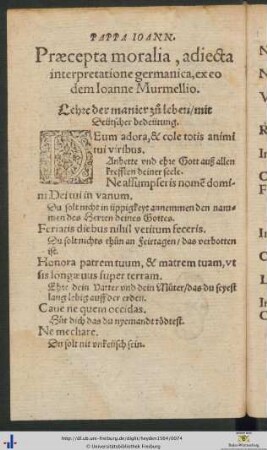 PAPPA IOANN.
Præcepta moralia, adiecta
interpretatione germanica, ex eo
dem Ioanne Murmellio.
Lehre der manier zů leben/mit
Deütscher bedeütung.
DEum adora, & cole totis animi
tui viribus.
Anbette vnd ehre Gott auß allen
krefften deiner seele.
Ne assumpseris nomē domi-
ni Dei tui in vanum.
Du solt nicht in üppigkeyt annemmen den nam-
men des Herren deines Gottes.
Feriatis diebus nihil vetitum feceris.
Du solt nichts thůn an Feirtagen/das verbotten
ist.
Honora patrem tuum, & matrem tuam, vt
sis longæuus super terram.
Ehre dein Vatter vnd dein Můter/das du seyest
lang lebig auff der erden.
Caue ne quem occidas.
Hüt dich das du nyemandt tödtest.
Ne mechare.
Du solt nit vnkeüsch sein.
http://dl.ub.uni-freiburg.de/diglit/heyden1584/0074
© Universitätsbibliothek Freiburg
Baden-Württemberg